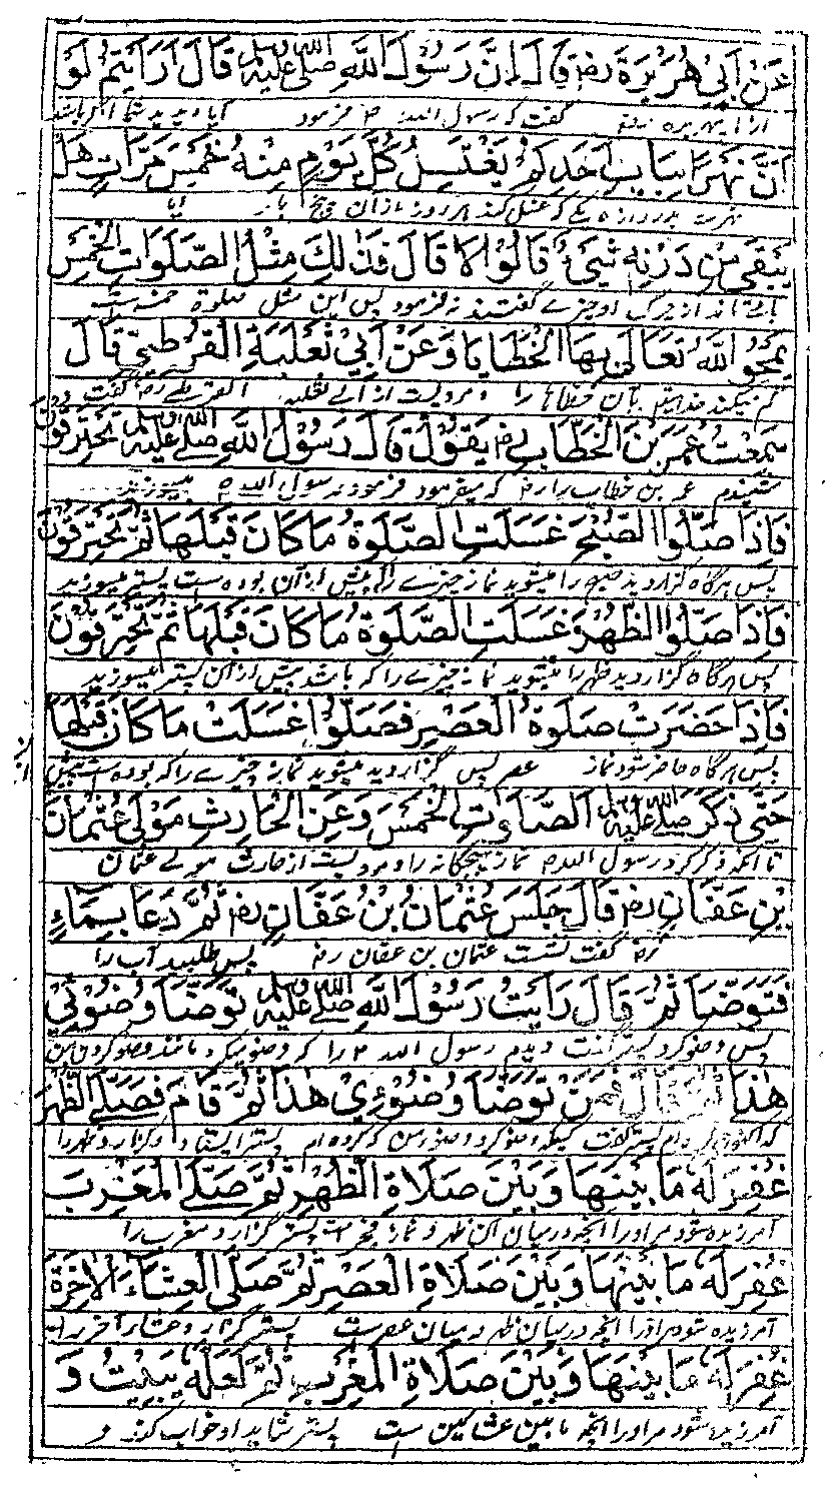 عَنْ اَبِيْ هُرَيْرَةَ رض قَالَ اِنَّ رَسُوْلَ اللّٰهِ صلى الله عليه وسلم قَالَ اَرَاَيْتُمْ لَوْ
از ابیهریره رض گفت که رسول الله م فرمود آیا دیدید شما اگر باشد
اَنَّ نَهَرًا بِبَابِ اَحَدِكُمْ يَغْتَسِلُ كُلَّ يَوْمٍ مِنْهُ خَمْسَ مَرَّاتٍ هَلْ
نهرست بدروازه یکے که غسل کند هر روز ازان پنج بار آیا
يَبْقٰى مِنْ دَرَنِهٖ شَيْءٌ قَالُوْا لَا قَالَ فَذٰلِكَ مِثْلُ الصَّلَوَاتِ الْخَمْسِ
باقے ماند از چرک او چیزے گفتند نه فرمود پس این مثل صلوة خمسه است
يَمْحُو اللّٰهُ تَعَالٰى بِهَا الْخَطَايَا وَعَنْ اَبِيْ ثَعْلَبَةَ الْقُرَظِيِّ قَالَ
کم میکند خدایتعالی بآن خطاها را و مرویست از ابی ثعلبه القرظی رض گفت
سَمِعْتُ عُمَرَ بْنَ الْخَطَّابِ رض يَقُوْلُ قَالَ رَسُوْلُ اللّٰهِ صلى الله عليه وسلم تَحْتَرِقُوْنَ
شنیدم عمر بن خطاب را رض که میفرمود فرمود رسول الله م میسوزید
فَاِذَا صَلَّوُا الصُّبْحَ غَسَلَتِ الصَّلٰوةُ مَا كَانَ قَبْلَهَا ثُمَّ تَحْتَرِقُوْنَ
پس هرگاه گزاردید صبح را میشوید نماز چیزے را که پیش ازان بوده ست پستر میسوزید
فَاِذَا صَلَّوُا الظُّهْرَ غَسَلَتِ الصَّلٰوةُ مَا كَانَ قَبْلَهَا ثُمَّ تَحْتَرِقُوْنَ
پس هرگاه گزاردید ظهر را میشوید نماز چیزے را که باشد پیش ازان پستر میسوزید
فَاِذَا حَضَرَتْ صَلٰوةُ الْعَصْرِ فَصَلُّوْا غَسَلَتْ مَا كَانَ قَبْلَهَا
پس هرگاه حاضر شود نماز عصر پس گزاردید میشوید نماز چیزے را که بوده ست پیش
حَتّٰى ذَكَرَ صلى الله عليه وسلم الصَّلَوٰتِ الْخَمْسَ وَعَنِ الْحَارِثِ مَوْلٰى عُثْمَانَ
تا آنکه ذکر کرد رسول الله م نماز پنجگانه را و مرویست از حارث مولے عثمان
بْنِ عَفَّانَ رض قَالَ جَلَسَ عُثْمَانُ بْنُ عَفَّانِ رض ثُمَّ دَعَا بِمَاءٍ
رض گفت نشست عثمان بن عفان رض پس طلبید آب را
فَتَوَضَّاَ ثُمَّ قَالَ رَاَيْتُ رَسُوْلَ اللّٰهِ صلى الله عليه وسلم تَوَضَّاَ وُضُوْئِيْ
پس وضو کرد پستر گفت دیدم رسول الله م را که وضو میکرد مانند وضو کردن من
هٰذَا ثُمَّ قَالَ مَنْ تَوَضَّاَ وُضُوْئِيْ هٰذَا ثُمَّ قَامَ فَصَلَّى الظُّهْرَ
پستر گفت کسیکه وضو کرد وضوء من که کرده ام پستر ایستاد و گزارد ظهر را
غُفِرَ لَهٗ مَا بَيْنَهَا وَبَيْنَ صَلَاةِ الظُّهْرِ ثُمَّ صَلَّى الْمَغْرِبَ
آمرزیده شود مر او را آنچه درمیان آن ظهر و نماز فجرست پستر گزارد مغرب را
غُفِرَ لَهٗ مَا بَيْنَهَا وَبَيْنَ صَلَاةِ الْعَصْرِ ثُمَّ صَلَّى الْعِشَاءَ الْاٰخِرَةَ
آمرزیده شود مر او را آنچه درمیان ظهر و میان عصرست پستر گزارد عشاء آخر را
غُفِرَ لَهٗ مَا بَيْنَهَا وَبَيْنَ صَلَاةِ الْمَغْرِبِ ثُمَّ لَعَلَّهٗ يَبِيْتُ وَ
آمرزیده شود مر او را آنچه مابین عشائین ست پستر شاید او خواب کند و